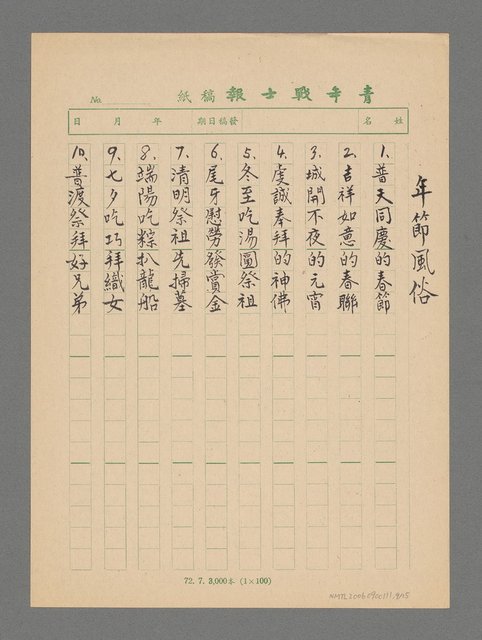 青年戰士報稿紙
No.
姓名
發稿日期
年 月 日
年節風俗
1、普天同慶的春節
2、吉祥如意的春聯
3、城開不夜的元宵
4、虔誠奉拜的神佛
5、冬至吃湯圓祭祖
6、尾牙慰勞發賞金
7、清明祭祖先掃墓
8、端陽吃粽扒龍船
9、七夕吃巧拜織女
10、普渡祭拜好兄弟
72. 7. 3,000本 (1×100)
NMTL20060900111,9/15